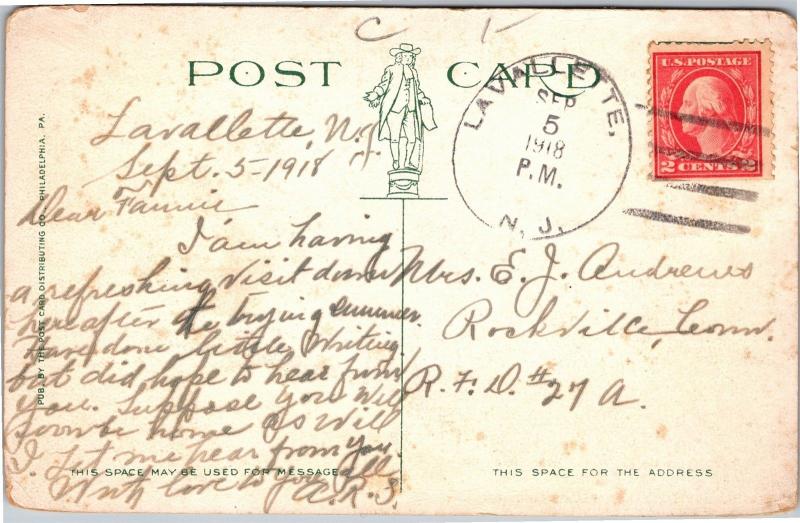 POST CARD
LAVALLETTE,
SEP
5
1918
P.M.
N.J.
U.S. POSTAGE
2 CENTS 2
Lavallette, N.J.
Sept. 5-1918
Dear Fannie
I am having
a refreshing visit down
here after the trying summer.
Have done little writing
but did hope to hear from
you. Suppose you will
soon be home as will
I. Let me hear from you.
With love to you all
A.R.S.
Mrs. E. J. Andrews
Rockville, Conn.
R.F.D. #27 A.
THIS SPACE MAY BE USED FOR MESSAGE
THIS SPACE FOR THE ADDRESS
PUB. BY THE POST CARD DISTRIBUTING CO., PHILADELPHIA, PA.